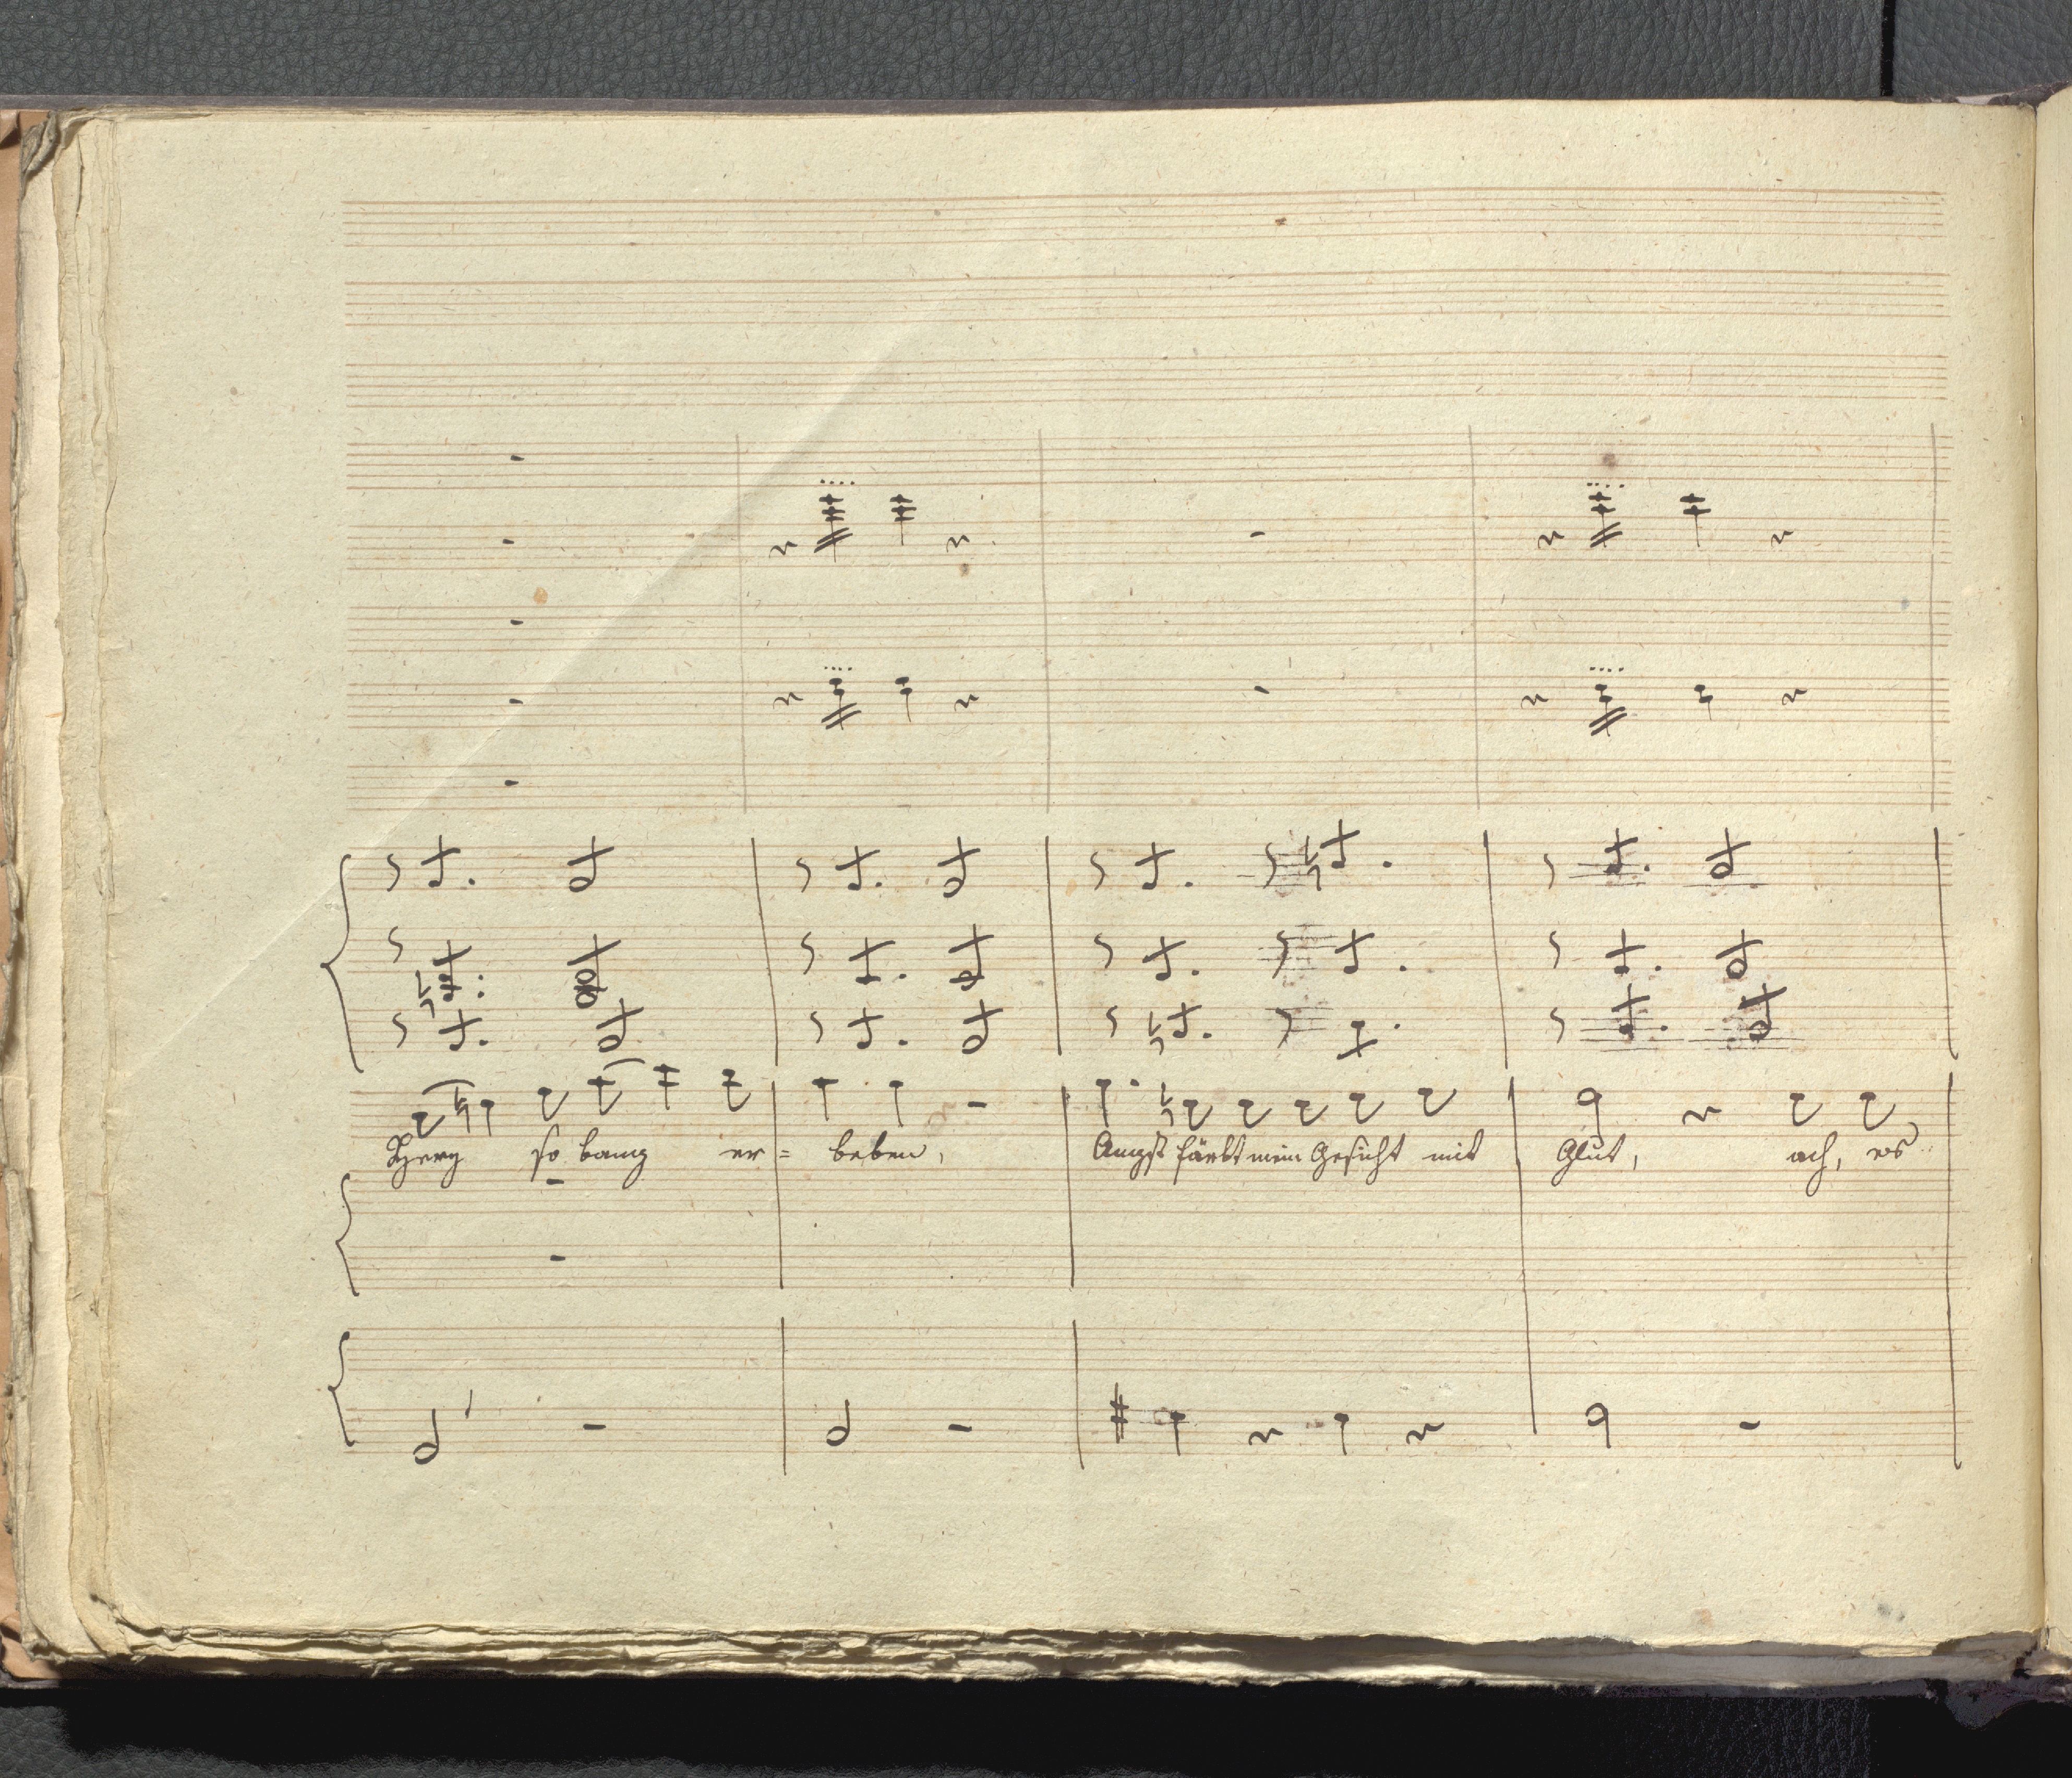 Herz so bang er= beben, Angst färbt mein Gesicht mit Glut, ach, es